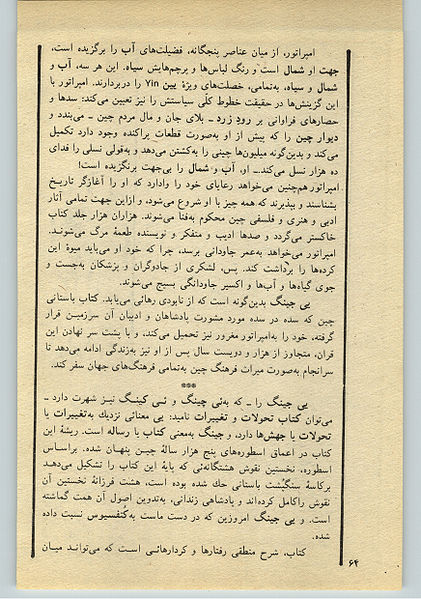 امپراتور، از میان عناصر پنجگانه، فضیلت‌های آب را برگزیده است،
جهت او شمال است و رنگ لباس‌ها و پرچم‌هایش سیاه. این هر سه، آب و
شمال و سیاه، به‌تمامی، خصلت‌های ویژهٔ یین Yin را دربردارند. امپراتور با
این گزینش‌ها در حقیقت خطوط کلّی سیاستش را نیز تعیین می‌کند: سدها و
حصارهای فراوانی بر رودِ زرد ـ بلای جان و مال مردم چین ـ می‌بندد و
دیوار چین را که پیش از او به‌صورت قطعات پراکنده وجود دارد تکمیل
می‌کند و بدین‌گونه میلیون‌ها چینی را به‌کشتن می‌دهد و به‌قولی نسلی را فدای
ده هزار نسل می‌کند... او، آب و شمال را بی‌جهت برنگزیده است!
امپراتور هم‌چنین می‌خواهد رعایای خود را وادارد که او را آغازگر تاریخ
بشناسند و بپذیرند که همه چیز با او شروع می‌شود، و ازاین جهت تمامی آثار
ادبی و هنری و فلسفی چین محکوم به‌فنا می‌شوند. هزاران هزار جلد کتاب
خاکستر می‌گردد و صدها ادیب و متفکر و نویسنده طعمهٔ مرگ می‌شوند.
امپراتور می‌خواهد به‌عمر جاودانی برسد، چرا که خود او می‌باید میوهٔ این
کرده‌ها را برداشت کند. پس، لشکری از جادوگران و پزشکان به‌جست و
جوی گیاه‌ها و آب‌ها و اکسیر جاودانگی بسیج می‌شوند.
یی جینگ بدین‌گونه است که از نابودی رهائی می‌یابد. کتاب باستانی
چین که سده در سده مورد مشورت پادشاهان و ادیبان آن سرزمین قرار
گرفته، خود را به‌امپراتور مغرور نیز تحمیل می‌کند، و با پشت سر نهادن این
قران، متجاوز از هزار و دویست سال پس از او نیز به‌زندگی ادامه می‌دهد تا
سرانجام به‌صورت میراث فرهنگ چین به‌تمامی فرهنگ‌های جهان سفر کند.
***
یی جینگ را ـ که به‌ئی چینگ و ئـی کینـگ نیـز شهرت دارد ـ
می‌توان کتاب تحولات و تغییرات نامید: یی معنائی نزدیك به‌تغییرات یا
تحولات یا جهش‌ها دارد، و جینگ به‌معنی کتاب یا رساله است. ریشهٔ این
کتاب در اعماق اسطوره‌های پنج هزار سالهٔ چین پنهان شده. براساس
اسطوره، نخستین نقوش هشتگانه‌ئی که پایهٔ این کتاب را تشکیل می‌دهد
برکاسهٔ سنگپُشت باستانی حك شده بوده است، هشت فرزانهٔ نخستین آن
نقوش راکامل کرده‌اند و پادشاهی زندانی، به‌تدوین اصول آن همت گماشته
است. و یی جینگ امروزین که در دست ماست به‌کنفسیوس نسبت داده
شده.
کتاب، شرح منطقی رفتارها و کردارهائـی است که می‌توانـد میـان
۶۴